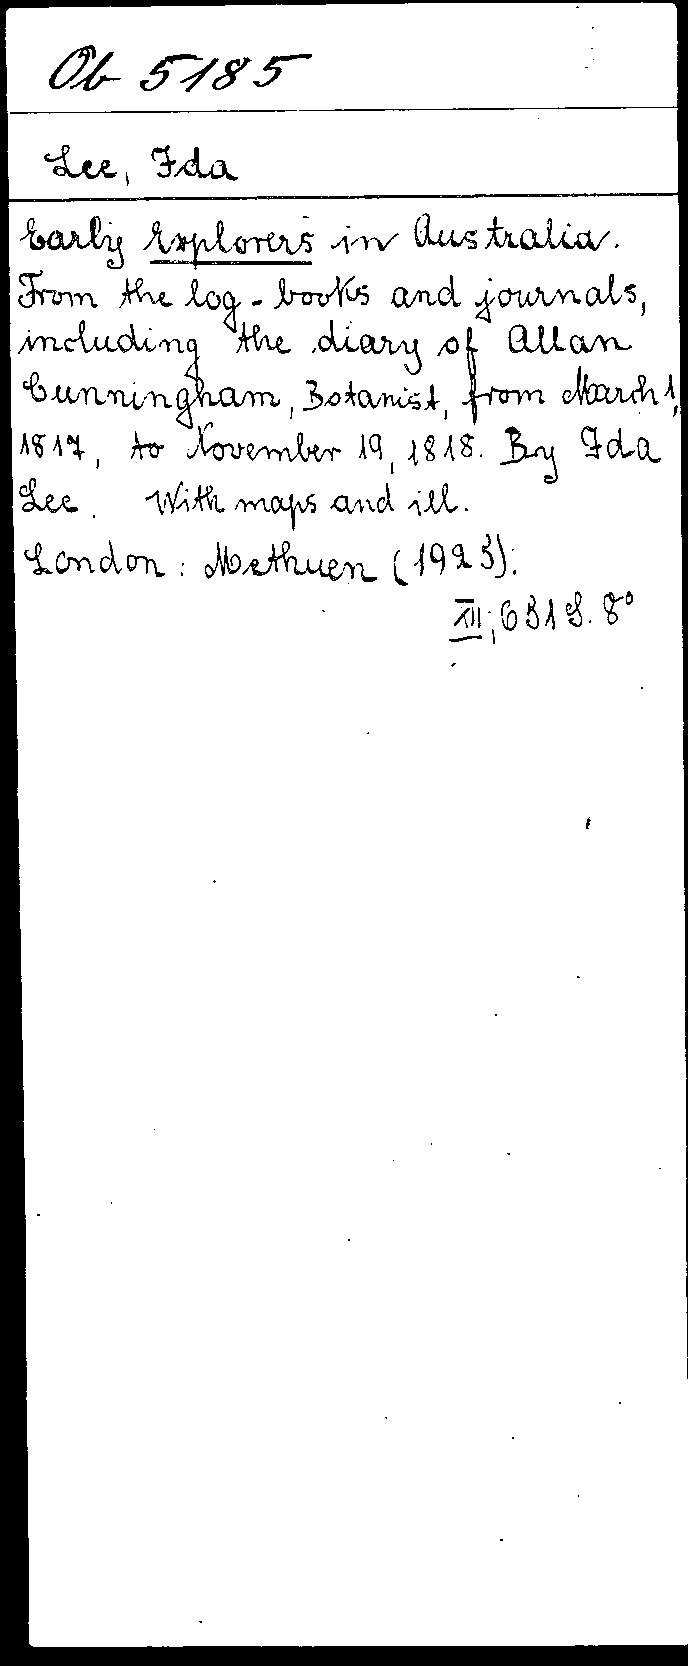 Ob 5185
Lee, Ida
Early Explorers in Australia.
From the log-books and journals,
including the diary of Allan
Cunningham, Botanist, from March 1,
1817, to November 19, 1818. By Ida
Lee. With maps and ill.
London: Methuen (1923).
XII, 651 S. 8°